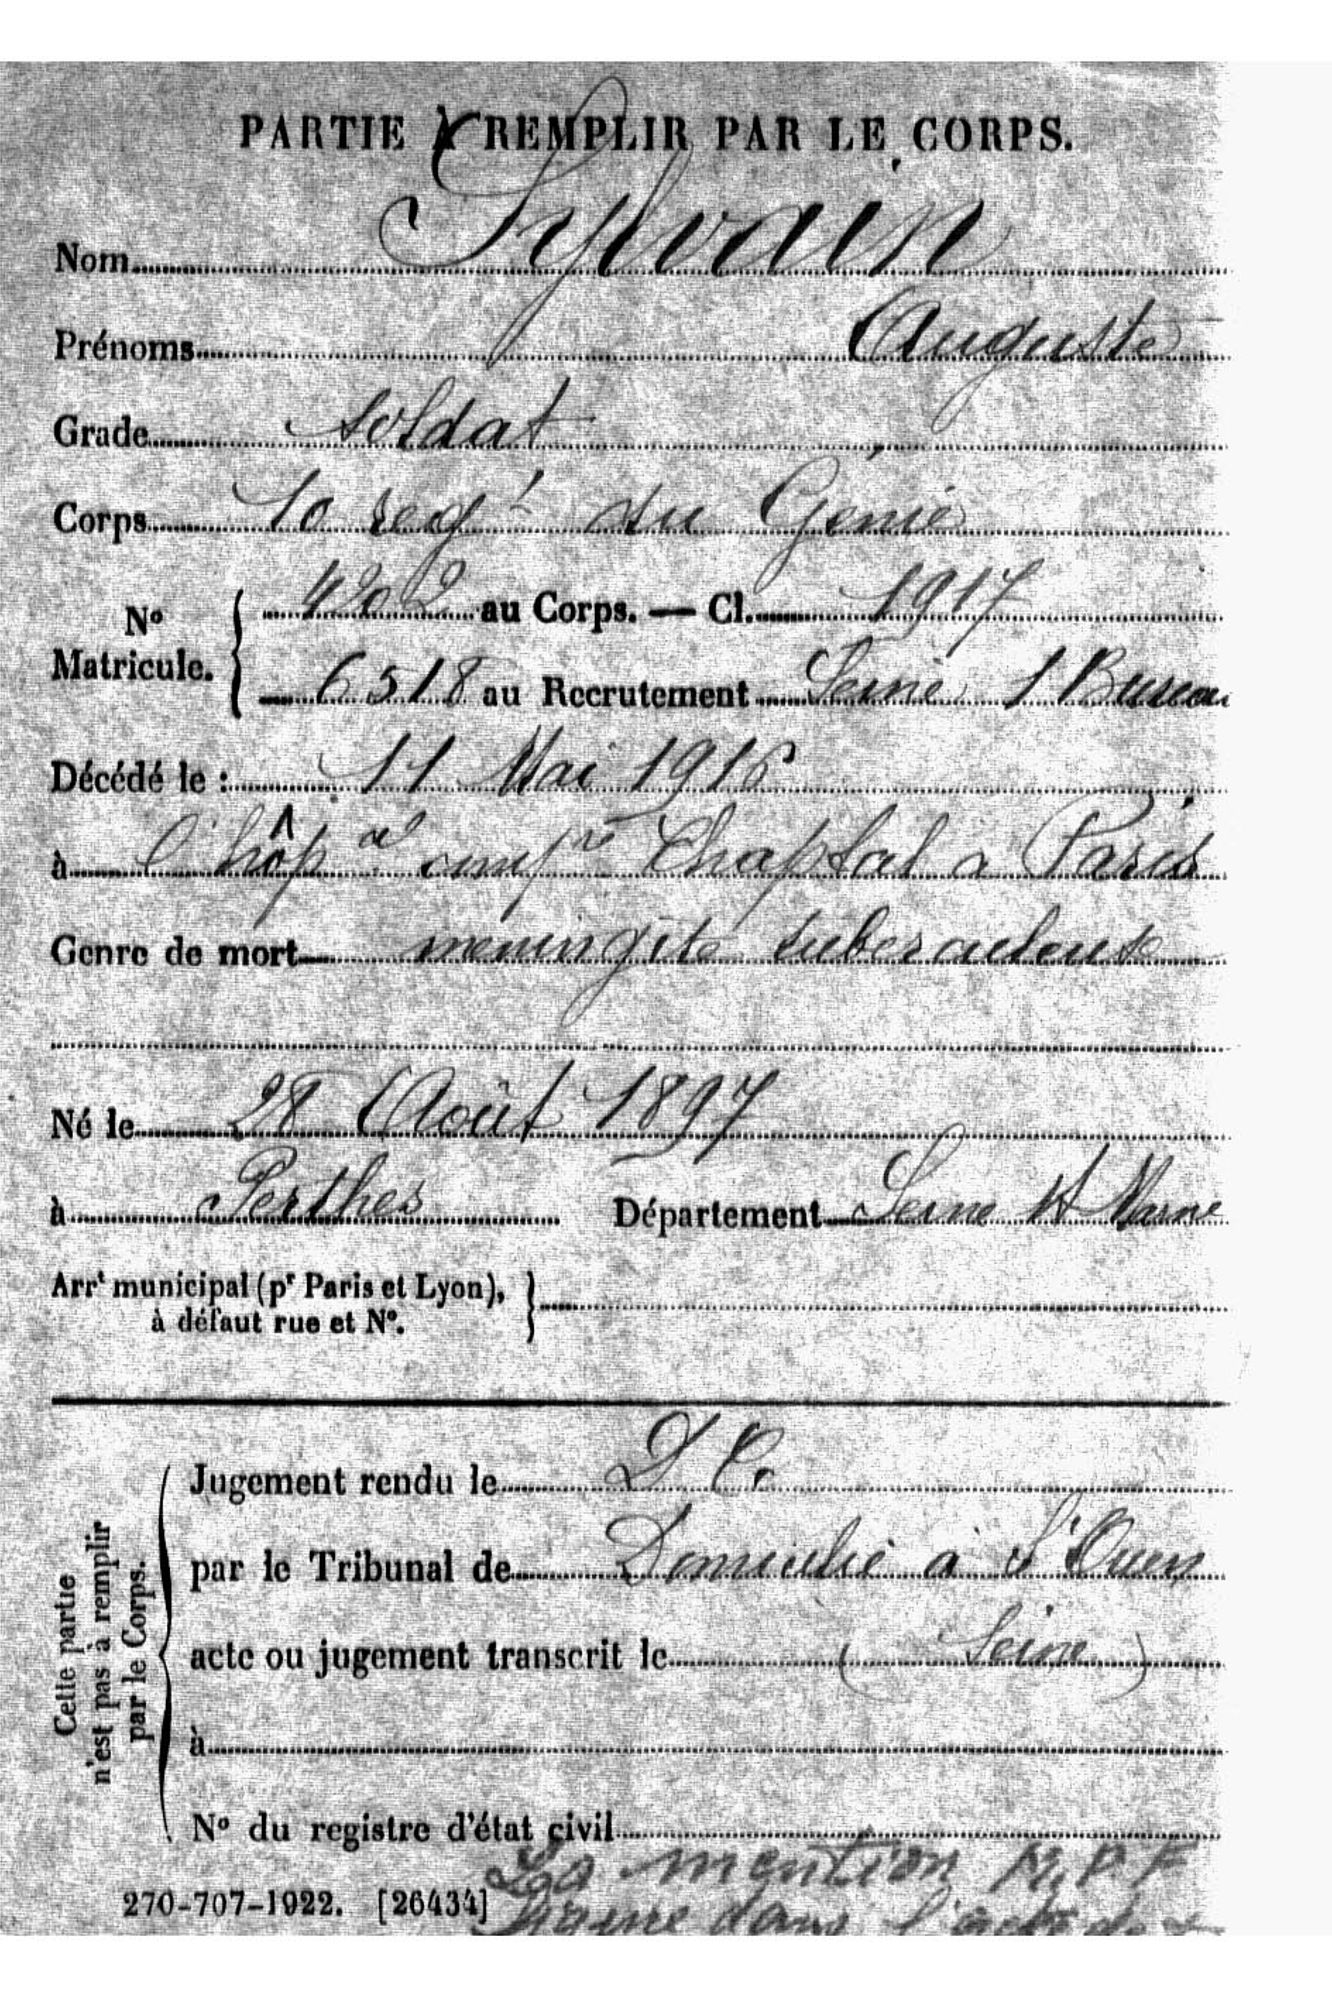 PARTIE À REMPLIR PAR LE CORPS.
Nom Sylvain
Prénoms Auguste
Grade soldat
Corps 10 regt du Génie
No Matricule. { 4202 au Corps. — Cl. 1917
6518 au Recrutement Seine 1 Bureau
Décédé le : 11 Mai 1916
à l'hôp al compre Chaptal a Paris
Genre de mort meningite tuberculeuse
Né le 28 Août 1897
à Perthes Département Seine et Marne
Arrt municipal (pr Paris et Lyon),
à défaut rue et No. }
Cette partie
n'est pas à remplir
par le Corps.
Jugement rendu le
par le Tribunal de Domicilié a St Ouen
acte ou jugement transcrit le ( Seine )
à
No du registre d'état civil
La mention M.P.F
270-707-1922. [26434]
dans l'acte de